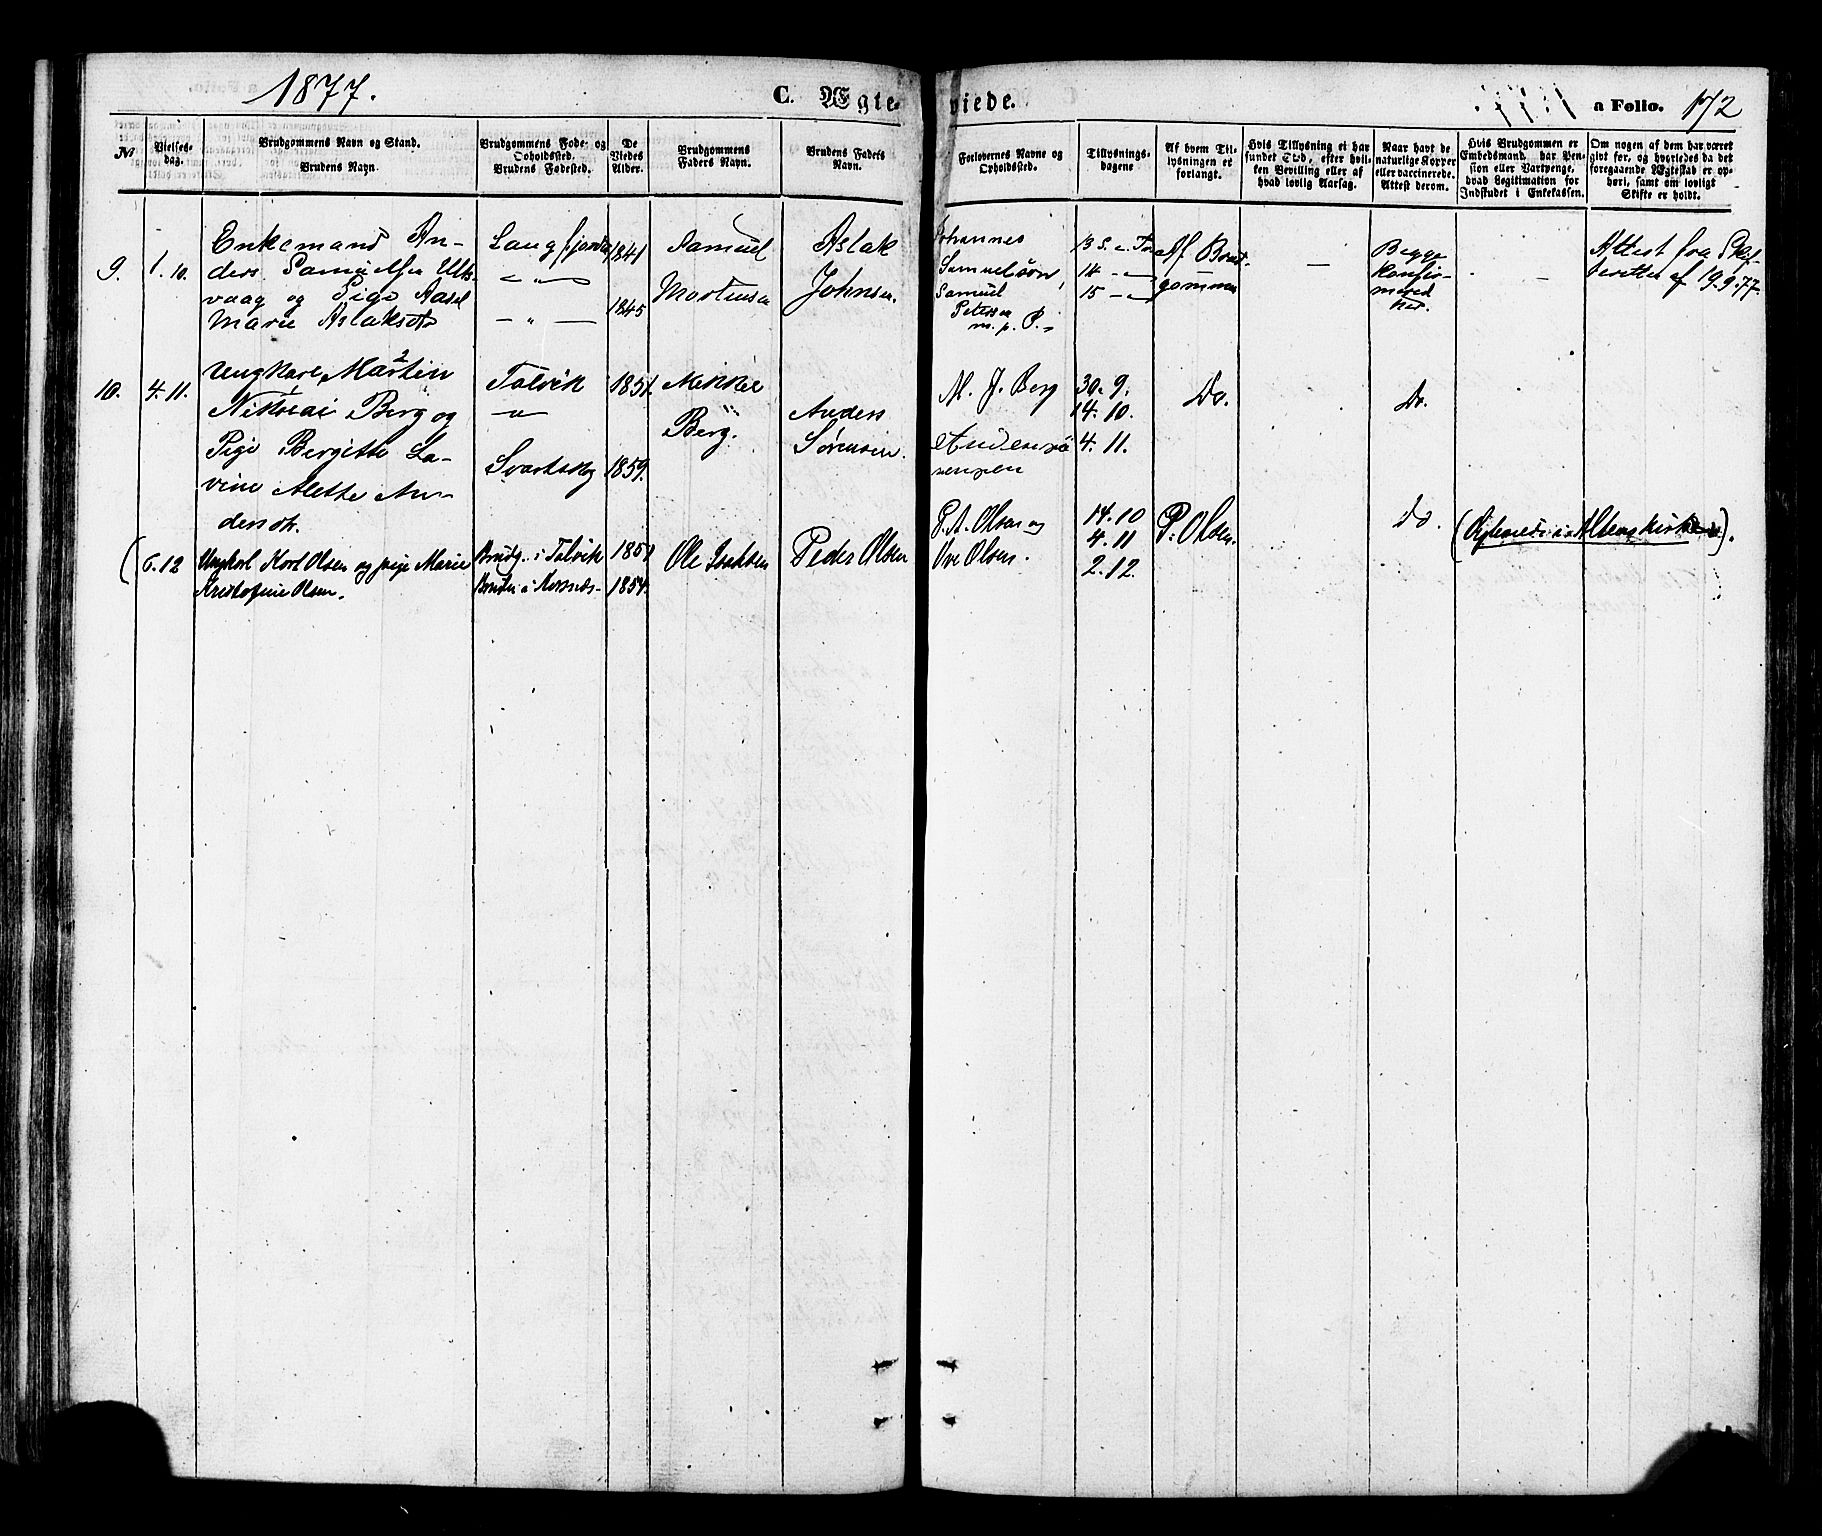 1877.
C. Ægteviede.
a Folio. 172
№
Vielses-
dag.
Brudgommens Navn og Stand.
Brudens Navn.
Brudgommens Føde- og
Opholdssted.
Brudens Fødested.
De
Viedes
Alder.
Brudgommens
Faders Navn.
Brudens Faders
Navn.
Forlovernes Navne og
Opholdssted.
Tillysnings-
dagene
Af hvem Til-
lysningen er
forlangt.
Hvis Tillysning ei har
fundet Sted, efter hvil-
ken Bevilling eller af
hvad lovlig Aarsag.
Naar havt de
naturlige Kopper
eller vaccinerede.
Attest derom.
Hvis Brudgommen er
Embedsmand, har Pen-
sion eller Vartpenge,
hvad Legitimation for
Indskudet i Enkekassen.
Om nogen af dem har været
givt før, og hvorledes da det
foregaaende Ægteskab er op-
hørt, samt om lovligt
Skifte er holdt.
9.
1.10.
Enkemand An-
ders Samuelsen Ulls-
vaag og Pige Aasel
Marie Aslaksdr
Langfjorden
— " —
— " —
1841
1845
Samuel
Mortensen
Aslak
Johnsen.
Johannes
Samuelsøn,
Samuel
Petersen
m. p. P.
13 S. e. Tr.
14 — "
15 — "
Af Brud-
gommen
—
Begge
konfir-
mered
her.
—
Attest fra Skif-
teretten af 19.9.77.
10.
4.11.
Ungkarl Martin
Nikolai Berg og
Pige Bergitte La-
vine Alette An-
dersdtr.
Talvik
— " —
Svartskog
1851.
1859.
Mikkel
Berg.
Anders
Sørensen.
M. J. Berg
30. 9.
14. 10.
4. 11.
Do.
Do.
(
6.12
Ungkarl Karl Olsen og pige Marie
Kristofine Olsen.
Brudg. i Talvik
Bruden i
1851
1854.
Ole Isaksen
Peder Olsen
P. A. Olsen og
Ove Olsen.
14. 10
4. 11
2. 12.
P. Olsen.
Do.
(Egteviede i Altens kirke).